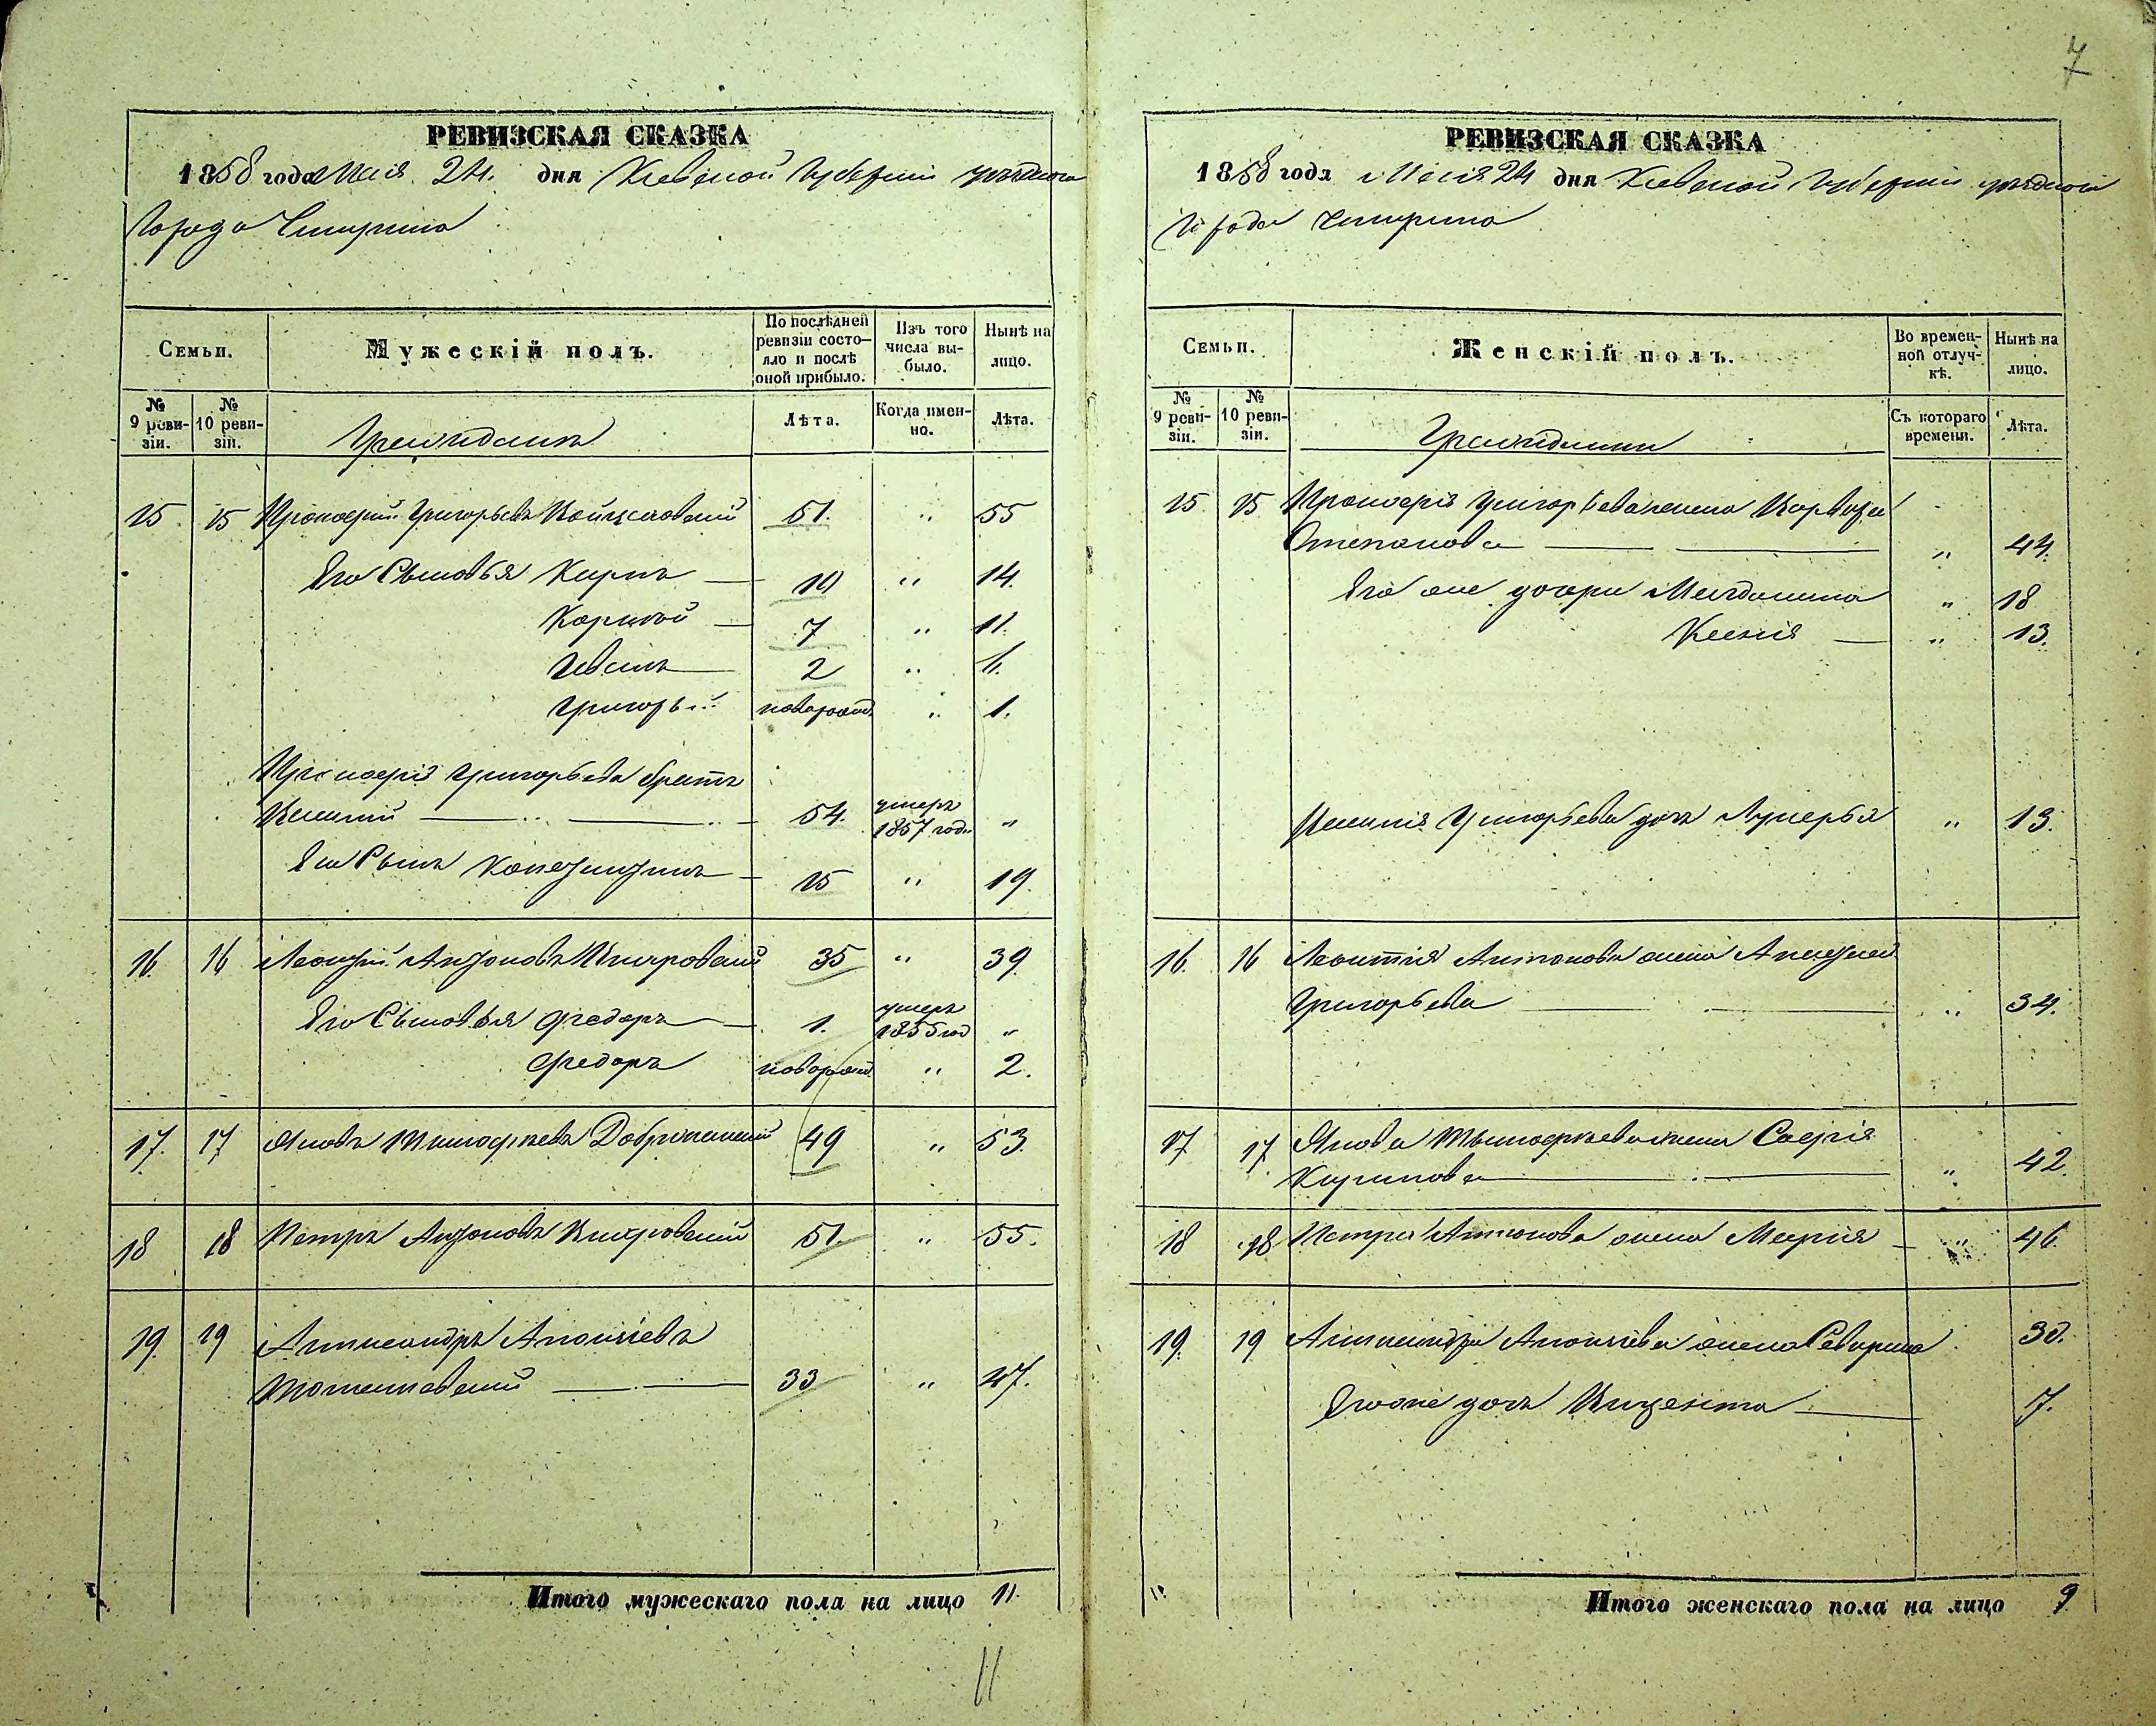 7
РЕВИЗСКАЯ СКАЗКА
1858 года Мая 24. дня Кіевской Губерніи уѣзднаго
Города Чигирина
Семьи.
Мужескій полъ.
По послѣдней ревизіи состояло и послѣ оной прибыло.
Изъ того числа выбыло.
Нынѣ на лицо.
№ 9 ревизіи.
№ 10 ревизіи.
Граждане
Лѣта.
Когда именно.
Лѣта.
15 15 Прокофій Григорьевъ 51. " 55
Его Сыновья Карпъ 10 " 14.
Корнѣй 7 " 11.
Иванъ 2 " 6.
Григорій новорожд. " 1.
Прокофія Григорьева братъ
54. умеръ 1857 года "
Его Сынъ 15 " 19.
16. 16 Леонтій Антоновъ 35 " 39.
Его Сыновья Федоръ 1. умеръ 1855 год "
Федоръ новорожд. " 2.
17. 17 Яковъ Тимофѣевъ 49 " 53.
18 18 Петръ Антоновъ 51. " 55.
19. 19 Александръ
33 " 47.
Итого мужескаго пола на лицо 11.
11
РЕВИЗСКАЯ СКАЗКА
1858 года Мая 24 дня Кіевской Губерніи уѣзднаго
Города Чигирина
Семьи.
Женскій полъ.
Во временной отлучкѣ.
Нынѣ на лицо.
№ 9 ревизіи.
№ 10 ревизіи.
Гражданки
Съ котораго времени.
Лѣта.
15 15 Прокофія Григорьева жена Варвара
Степанова " 44.
Его же дочери Магдалина " 18
Ксенія " 13.
Григорьева дочь Лукерья " 13.
16. 16 Леонтія Антонова жена
Григорьева " 34.
17 17 Якова Тимофѣева жена Софія
Кирилова " 42.
18 18 Петра Антонова жена Марія " 46.
19. 19 Александра жена Северина 30.
Его же дочь Вицента 7.
Итого женскаго пола на лицо 9